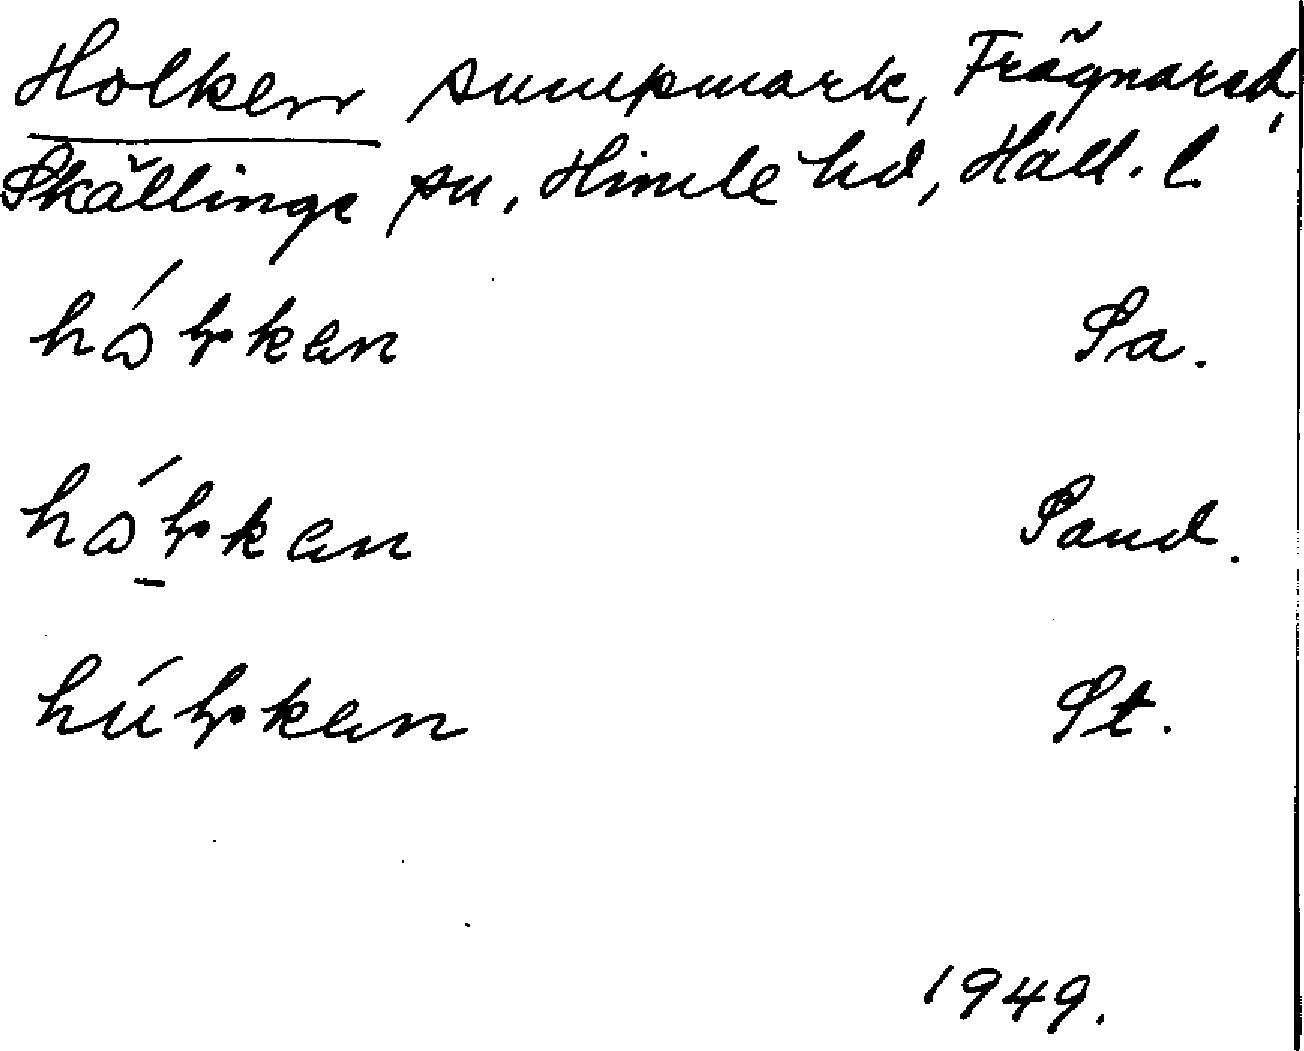 Holken sumpmark, Frägnared,
Skällinge sn, Himle hd, Hall. l.
hɷ́ƚkan Sa.
hɷ́ƚkan Sand.
húƚkan St.
1949.